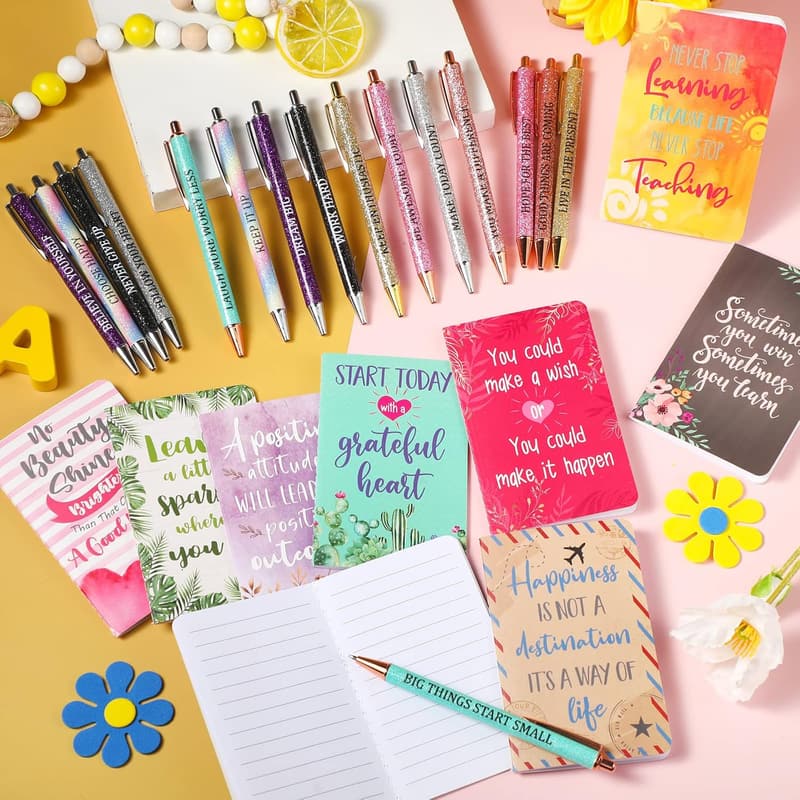 BELIEVE IN YOURSELF
CHOOSE HAPPY
NEVER GIVE UP
FOLLOW YOUR HEART
LAUGH MORE WORRY LESS
KEEP IT UP
DREAM BIG
WORK HARD
BE AWESOME TODAY
MAKE TODAY COUNT
HOPE FOR THE BEST
GOOD THINGS ARE COMING
LIVE IN THE PRESENT
NEVER STOP
Learning
BECAUSE LIFE
NEVER STOP
Teaching
Sometimes
you win
Sometimes
you learn
You could
make a wish
or
You could
make it happen
START TODAY
with a
grateful
heart
A positive
attitude
WILL LEAD
positi
outco
Leav
a littl
spark
where
you
No
Beauty
Shine
Brighte
Than That
A Good
Happiness
IS NOT A
destination
IT'S A WAY OF
life
BIG THINGS START SMALL